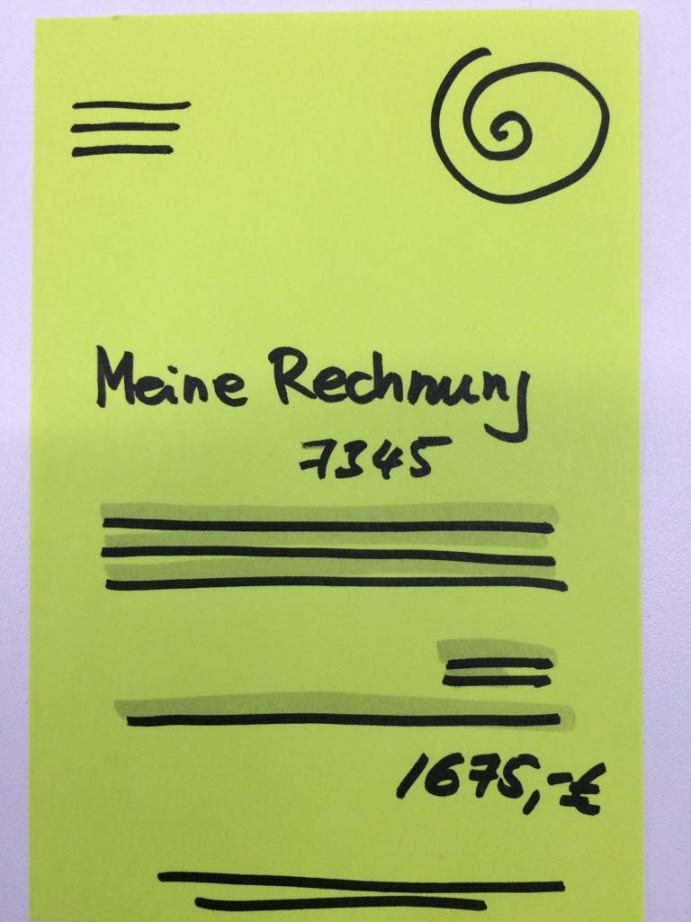 Meine Rechnung
7345
1675,-€